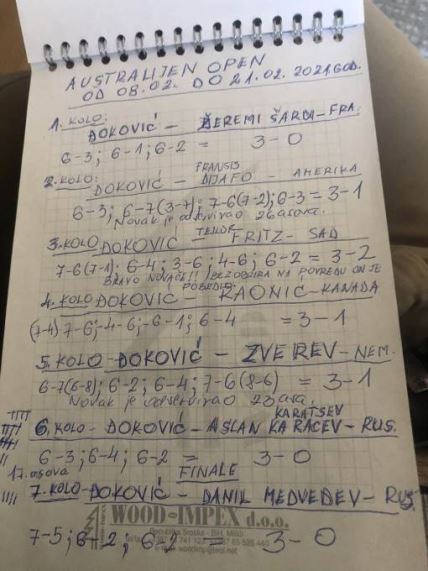 AUSTRALIJEN OPEN
OD 08.02. DO 21.02.2021.GOD.
1. KOLO:
ĐOKOVIĆ - ŽEREMI ŠARDI-FRA.
6-3; 6-1; 6-2 = 3-0
2. KOLO: FRANSIS
ĐOKOVIĆ - TIJAFO - AMERIKA
6-3; 6-7(3-7); 7-6(7-2); 6-3 = 3-1
Novak je odservirao 26 asova.
3. KOLO ĐOKOVIĆ - TEJLOR FRITZ - SAD
7-6(7-1); 6-4; 3-6; 4-6; 6-2 = 3-2
BRAVO NOVAČE!! BEZ OBZIRA NA POVREDU ON JE
POBEDIO
4. KOLO ĐOKOVIĆ - RAONIĆ-KANADA
(7-4) 7-6; -4-6; -6-1; 6-4 = 3-1
5. KOLO-ĐOKOVIĆ - ZVEREV-NEM.
6-7(6-8); 6-2; 6-4; 7-6(8-6) = 3-1
Novak je odservirao 23 asa.
KARATSEV
6. KOLO - ĐOKOVIĆ - ASLAN KARACEV - RUS.
6-3; 6-4; 6-2 = 3-0
17. asova FINALE
7. KOLO-ĐOKOVIĆ - DANIL MEDVEDEV - RUS.
WOOD-IMPEX d.o.o.
Republika Srpska - BiH,
7-5; 6-2, 6-2 - 3-0